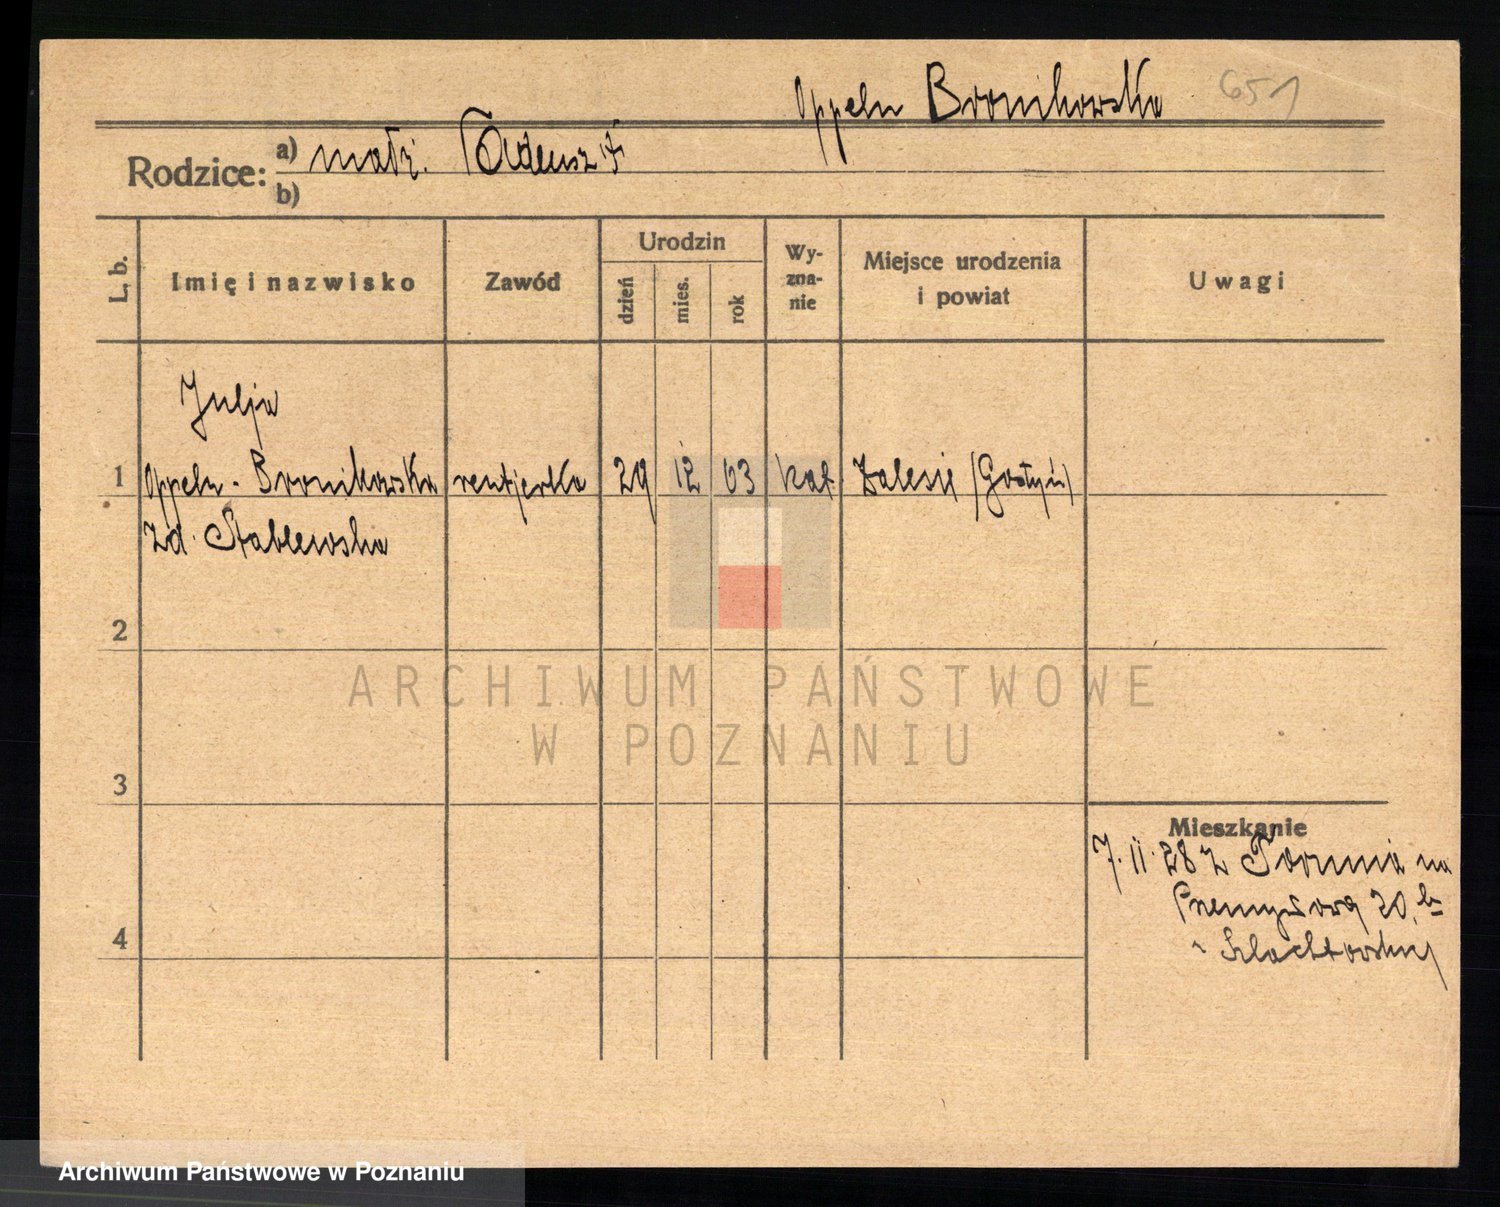 Oppeln Bronikowska 651
Rodzice: a) małż. Tadeusz
b)
L. b.
Imię i nazwisko
Zawód
Urodzin
dzień
mies.
rok
Wy-
zna-
nie
Miejsce urodzenia
i powiat
Uwagi
Julja
1 Oppeln-Bronikowska rentjerka 29 12 03 kat Zalesie (Gostyń)
zd. Stablewska
2
3
4
Mieszkanie
7. II. 28 z Torunia na
20,
ARCHIWUM PAŃSTWOWE
W POZNANIU
Archiwum Państwowe w Poznaniu